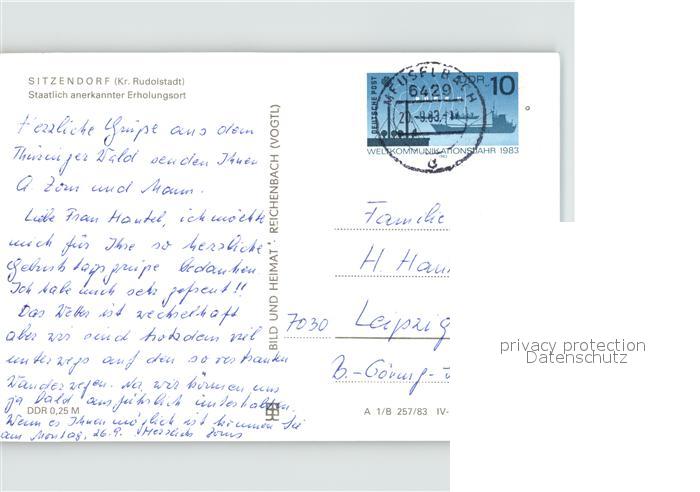 SITZENDORF (Kr. Rudolstadt)
Staatlich anerkannter Erholungsort
Herzliche Grüße aus dem
Thüringer Wald senden Ihnen
A. Zorn und Mann.
Liebe Frau Hantel, ich möchte
mich für Ihre so herzliche
Geburtstagsgrüße bedanken.
Ich habe mich sehr gefreut!!
Das Wetter ist wechselhaft
aber wir sind trotzdem viel
unterwegs auf den so vertrauten
Wanderwegen. Na, wir können uns
ja bald ausführlich unterhalten.
Wenn es Ihnen möglich ist kommen Sie
am Montag, 26.9. Herzlichst Zorns
DDR 0,25 M
BILD UND HEIMAT REICHENBACH (VOGTL)
DEUTSCHE POST
DDR 10
WELTKOMMUNIKATIONSJAHR 1983
MEUSELBACH
6429
20.-9.83.-
a
Familie
H. Han
7030 Leipzig
B.-Göring-
A 1/B 257/83 IV-
privacy protection
Datenschutz